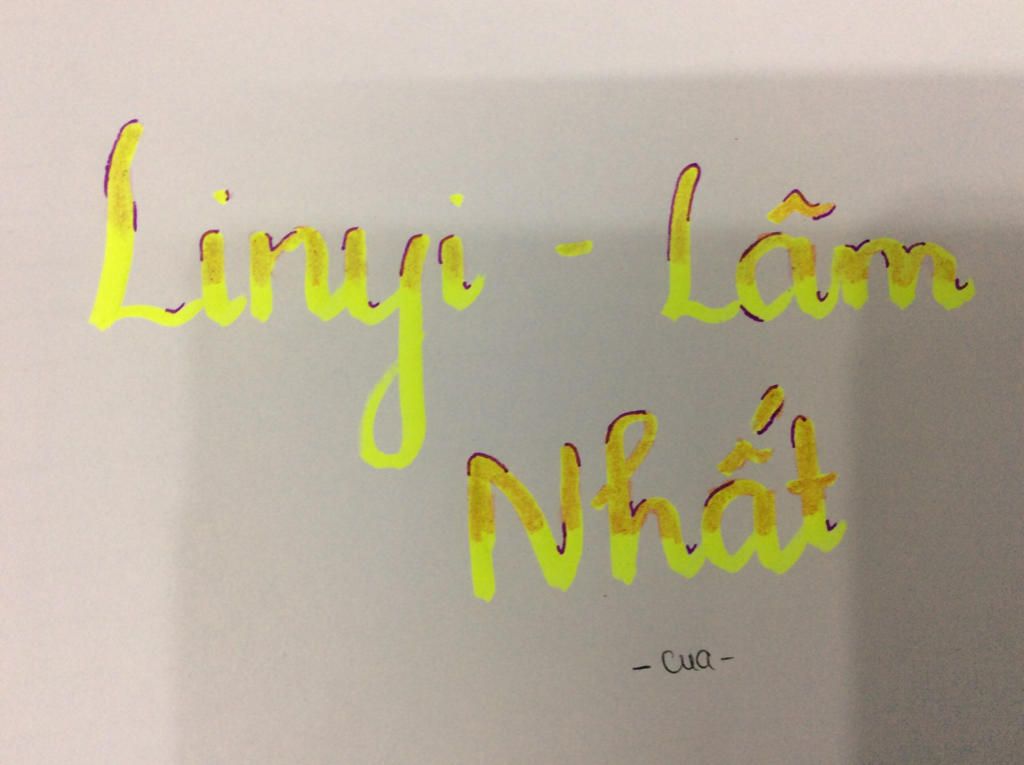 Linyi - Lâm
Nhất
- cua -